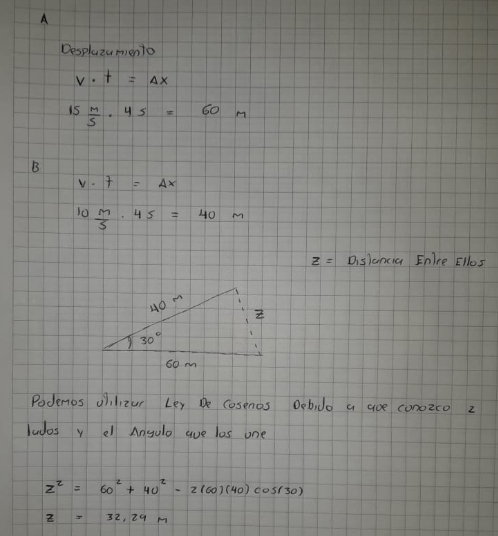 A
Desplazamiento
V · t = Δx
15 m/s · 4 s = 60 m
B
V · t = Δx
10 m/s · 4 s = 40 m
z = Distancia Entre Ellos
40 m
z
30°
60 m
Podemos utilizar Ley De Cosenos Debido a que conozco 2
lados y el Angulo que los une
z² = 60² + 40² - 2(60)(40) cos(30)
z = 32,29 m